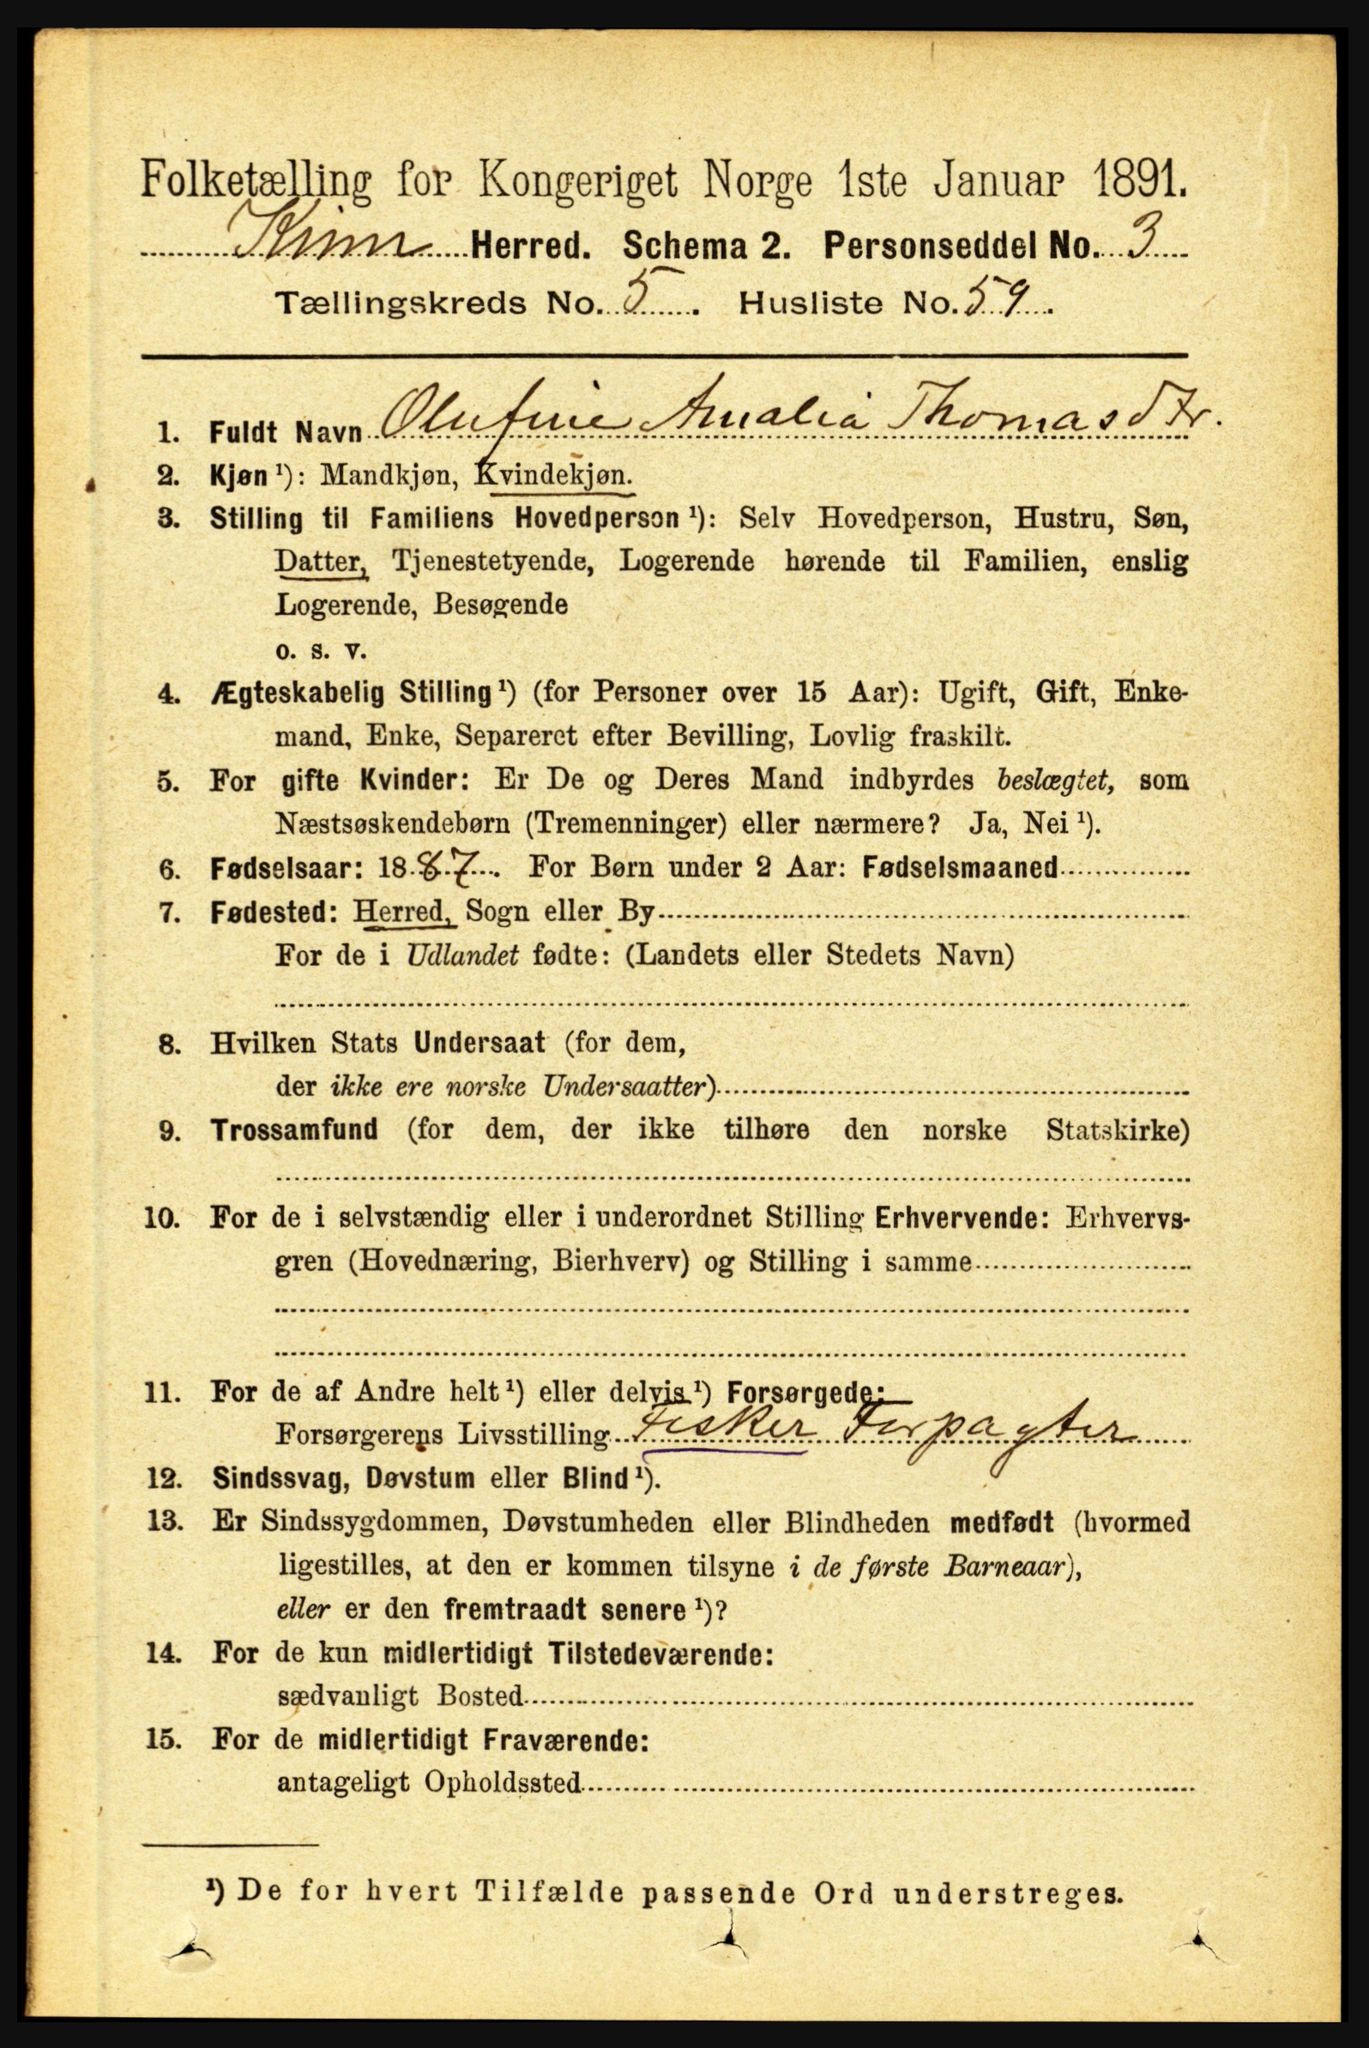 Folketælling for Kongeriget Norge 1ste Januar 1891.
Kinn Herred. Schema 2. Personseddel No. 3
Tællingskreds No. 5. Husliste No. 59.
1. Fuldt Navn Olufine Amalia Thomasdtr.
2. Kjøn ¹): Mandkjøn, Kvindekjøn.
3. Stilling til Familiens Hovedperson ¹): Selv Hovedperson, Hustru, Søn,
Datter, Tjenestetyende, Logerende hørende til Familien, enslig
Logerende, Besøgende
o. s. v.
4. Ægteskabelig Stilling ¹) (for Personer over 15 Aar): Ugift, Gift, Enke-
mand, Enke, Separeret efter Bevilling, Lovlig fraskilt.
5. For gifte Kvinder: Er De og Deres Mand indbyrdes beslægtet, som
Næstsøskendebørn (Tremenninger) eller nærmere? Ja, Nei ¹).
6. Fødselsaar: 1887. For Børn under 2 Aar: Fødselsmaaned
7. Fødested: Herred, Sogn eller By
For de i Udlandet fødte: (Landets eller Stedets Navn)
8. Hvilken Stats Undersaat (for dem,
der ikke ere norske Undersaatter)
9. Trossamfund (for dem, der ikke tilhøre den norske Statskirke)
10. For de i selvstændig eller i underordnet Stilling Erhvervende: Erhvervs-
gren (Hovednæring, Bierhverv) og Stilling i samme
11. For de af Andre helt ¹) eller delvis ¹) Forsørgede:
Forsørgerens Livsstilling Fisker Forpagter
12. Sindssvag, Døvstum eller Blind ¹).
13. Er Sindssygdommen, Døvstumheden eller Blindheden medfødt (hvormed
ligestilles, at den er kommen tilsyne i de første Barneaar),
eller er den fremtraadt senere ¹)?
14. For de kun midlertidigt Tilstedeværende:
sædvanligt Bosted
15. For de midlertidigt Fraværende:
antageligt Opholdssted
¹) De for hvert Tilfælde passende Ord understreges.